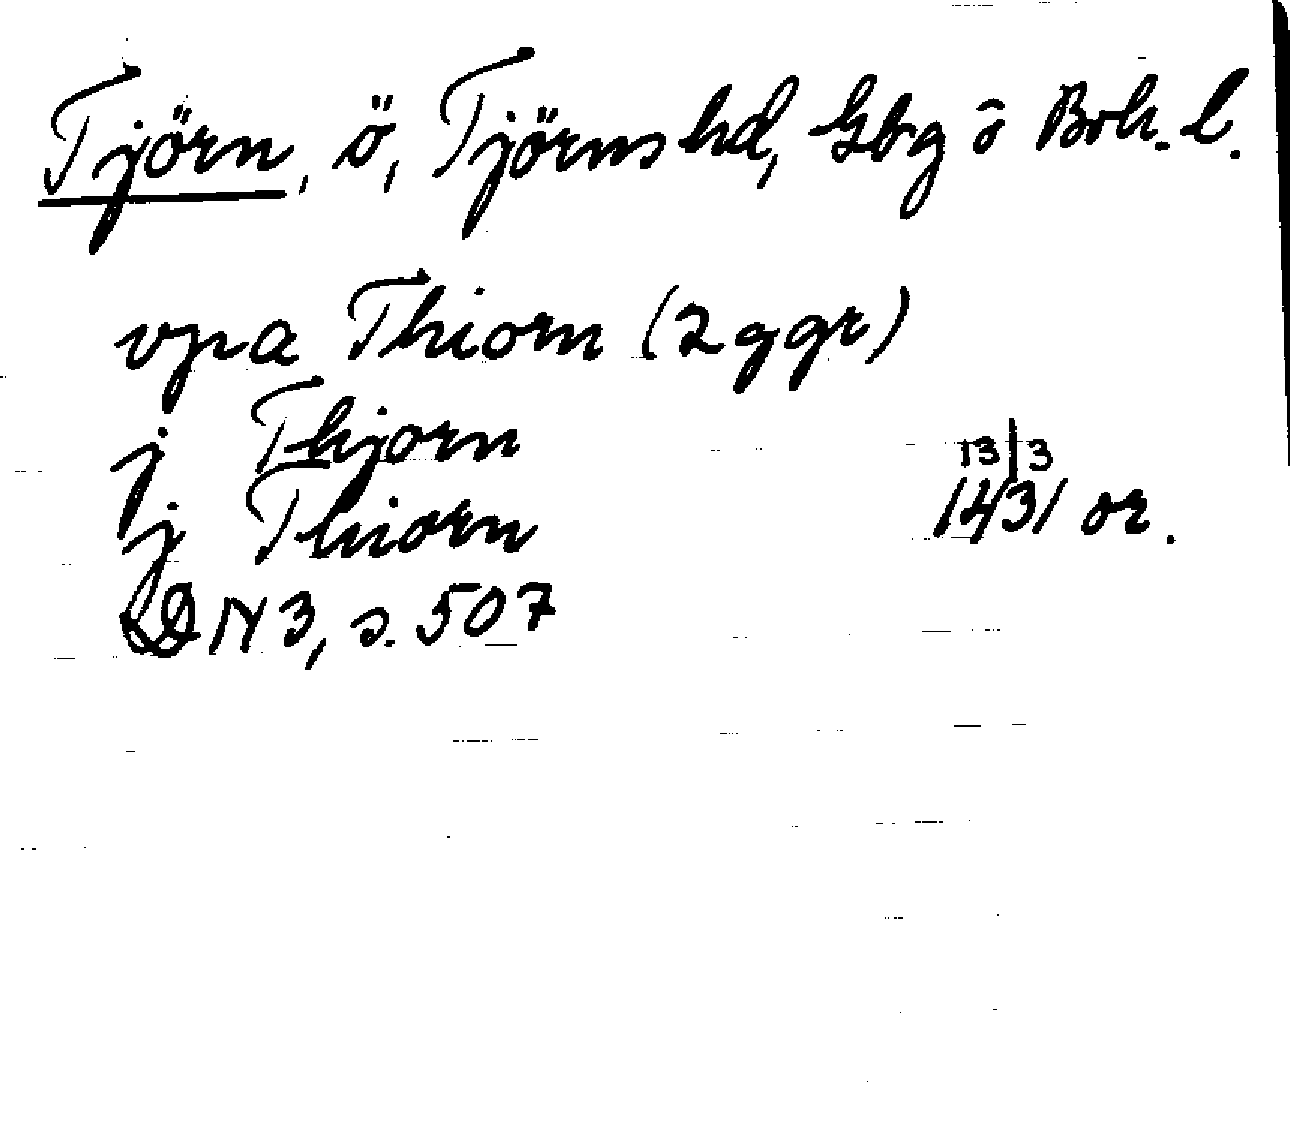 Tjörn, ö, Tjörns hd, Gbg o Boh. l.
vpa Thiorn (2 ggr)
j Thjorn
j Thiorn
13/3
1431 or.
DN 3, s. 507